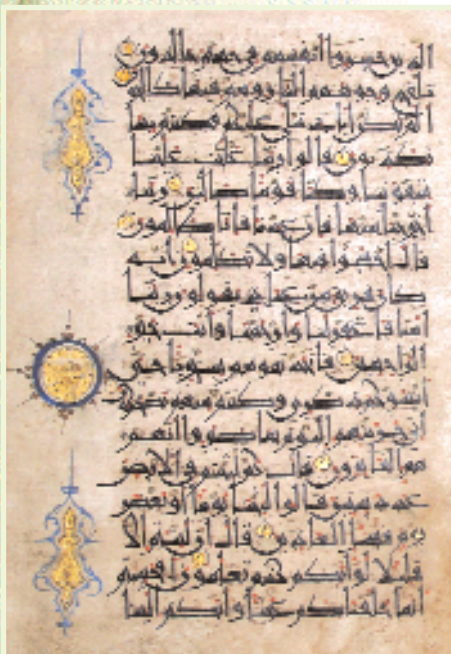 الذين خسروا أنفسهم في جهنم خالدون
تلفح وجوههم النار وهم فيها كالحون
ألم تكن آياتي تتلى عليكم فكنتم بها
تكذبون قالوا ربنا غلبت علينا
شقوتنا وكنا قوما ضالين ربنا
أخرجنا منها فإن عدنا فإنا ظالمون
قال اخسئوا فيها ولا تكلمون إنه
كان فريق من عبادي يقولون ربنا
آمنا فاغفر لنا وارحمنا وأنت خير
الراحمين فاتخذتموهم سخريا حتى
أنسوكم ذكري وكنتم منهم تضحكون
إني جزيتهم اليوم بما صبروا أنهم
هم الفائزون قال كم لبثتم في الأرض
عدد سنين قالوا لبثنا يوما أو بعض
يوم فسئل العادين قال إن لبثتم إلا
قليلا لو أنكم كنتم تعلمون أفحسبتم
أنما خلقناكم عبثا وأنكم إلينا